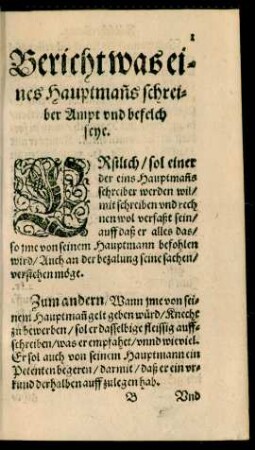 1
Bericht was ei-
nes Hauptmañs schrei-
ber Ampt vnd befelch
seye.
ERstlich / sol einer
der eins Hauptmañs
schreiber werden wil /
mit schreiben vnd rech
nen wol verfaßt sein /
auff daß er alles das /
so jme von seinem Hauptmann befohlen
wird / Auch an der bezalung seine sachen /
verstehen möge.
Zum andern / Wann jme von sei-
nem Hauptmañ gelt geben würd / Knecht
zu bewerben / sol er dasselbige fleissig auff-
schreiben / was er empfahet / vnnd wieviel.
Er sol auch von seinem Hauptmann ein
Petenten begeren / darmit / daß er ein vr-
kund derhalben auff zulegen hab.
B Vnd